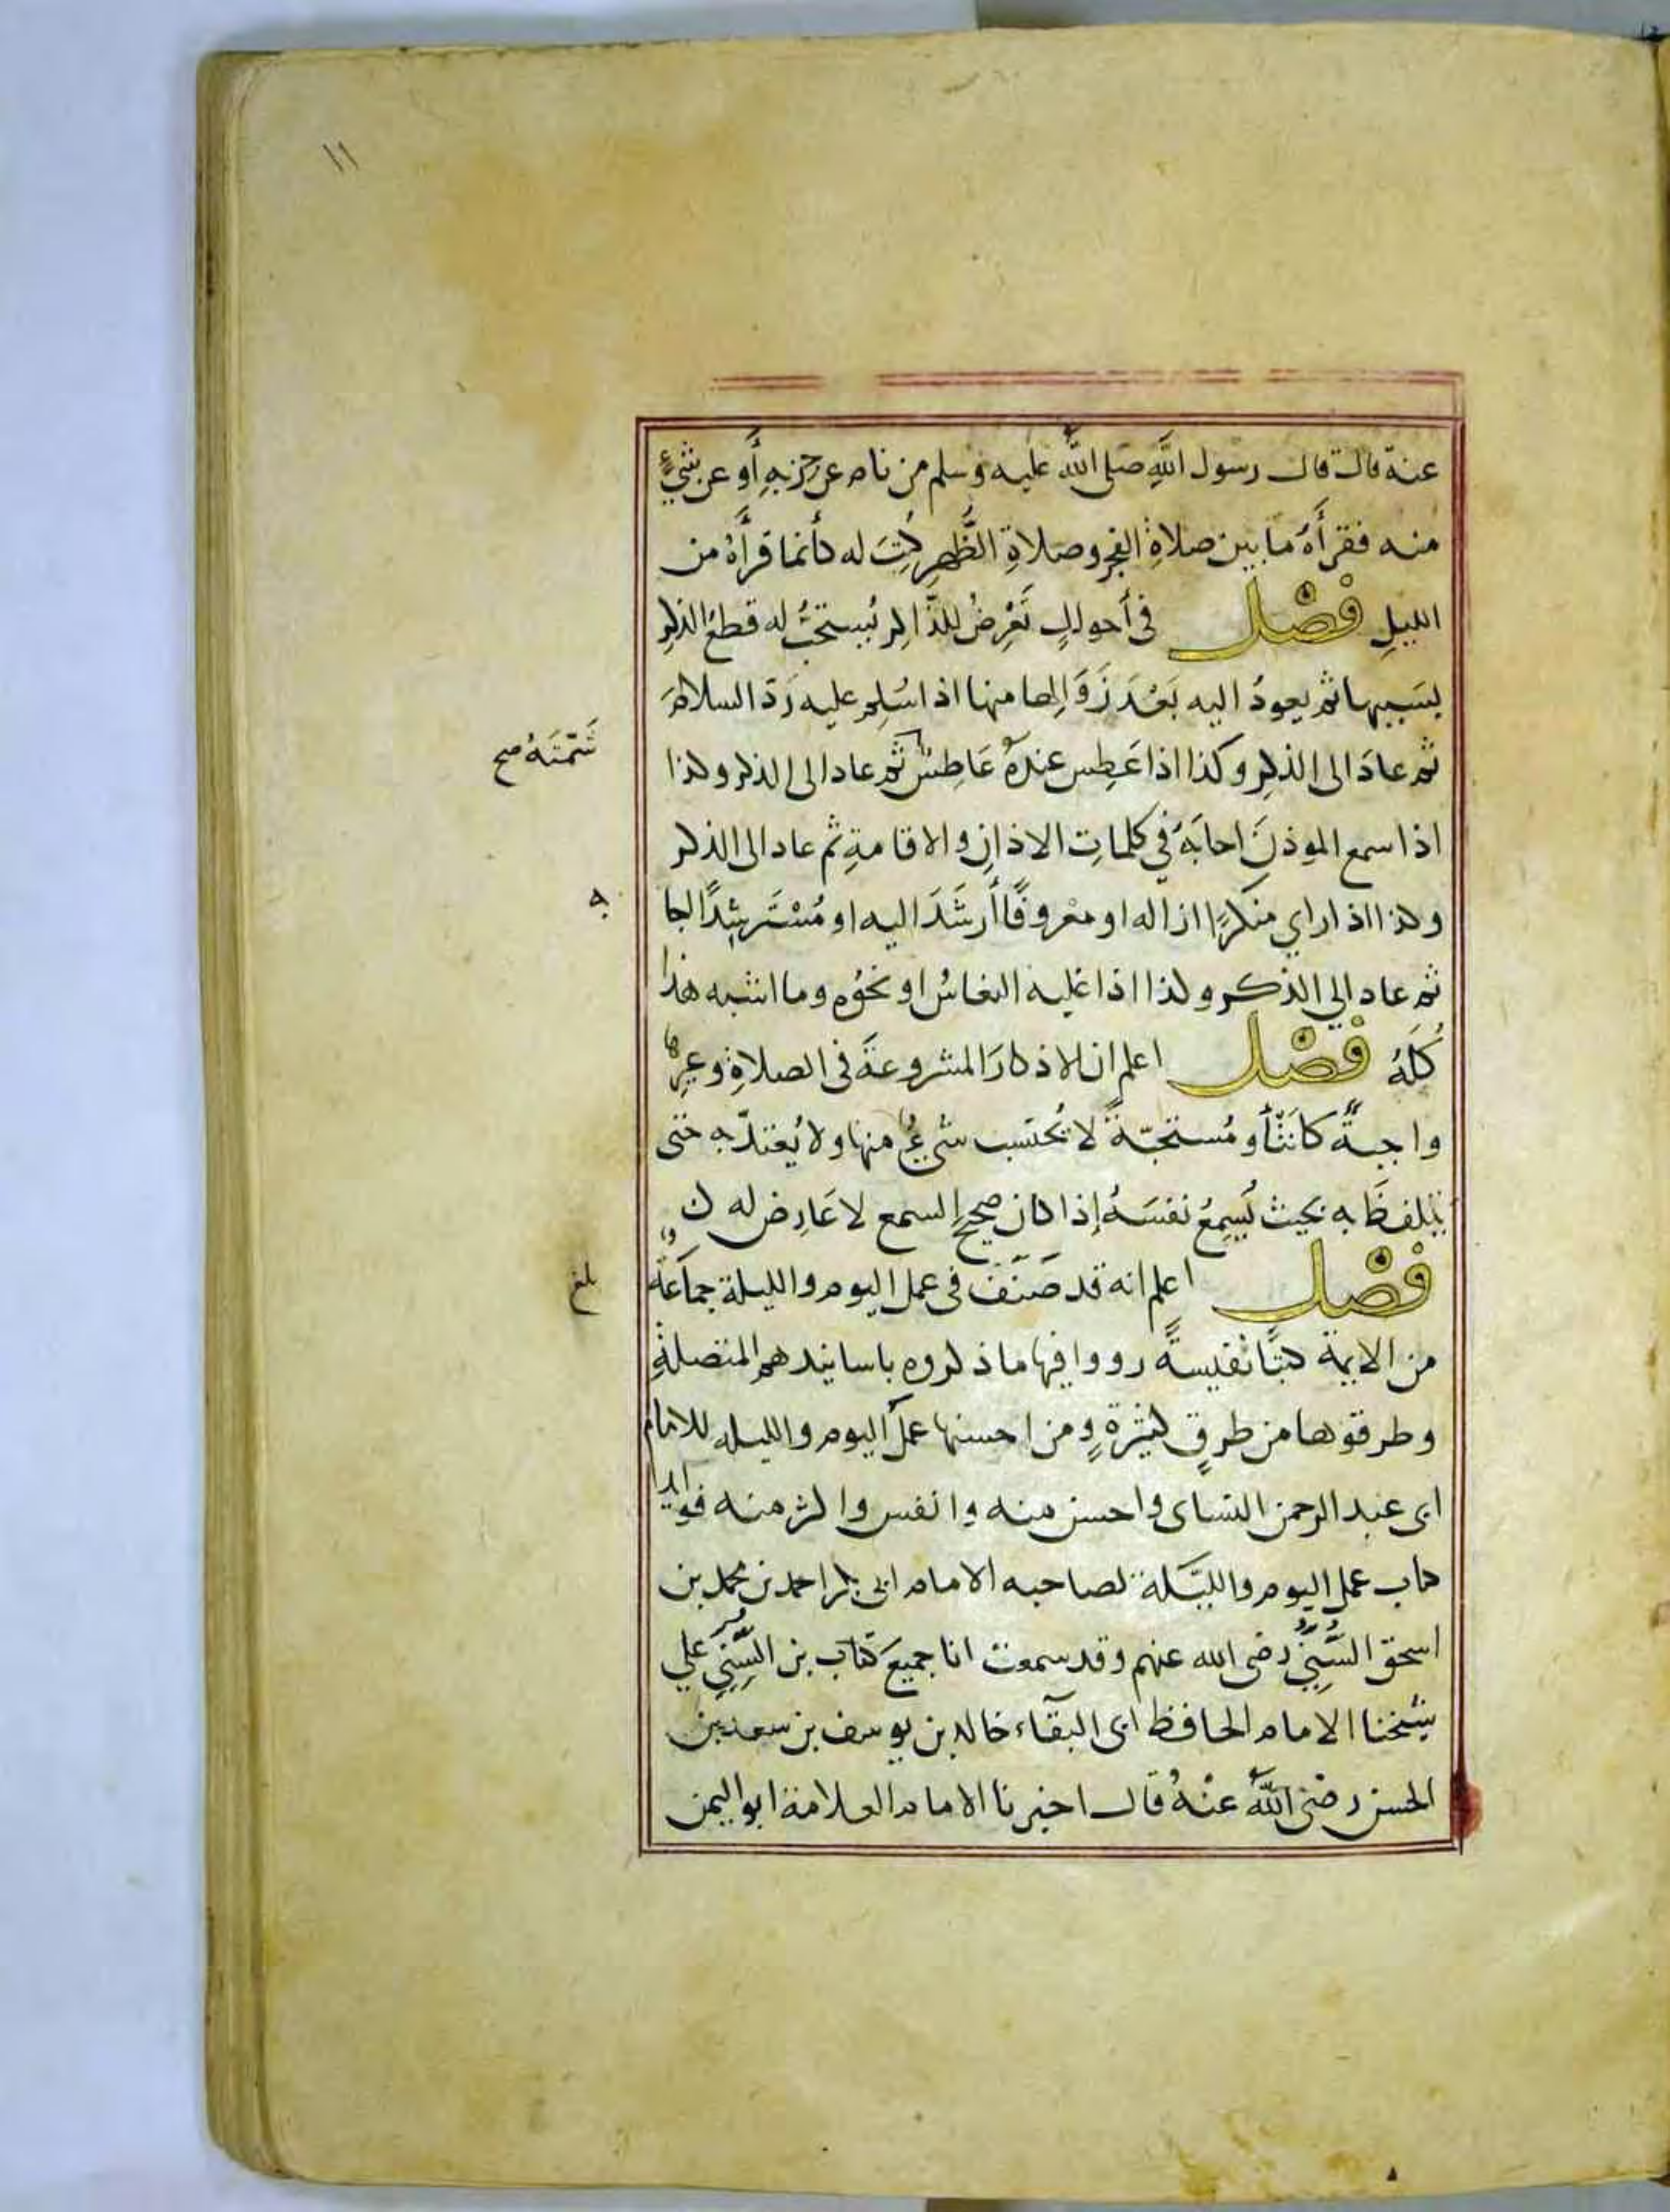 ١١
عنه قال قال رسول الله صلى الله عليه وسلم من نام عن حزبه أو عن شيء
منه فقرأه ما بين صلاة الفجر وصلاة الظهر كتب له كأنما قرأه من
الليل فصل في أحوال تعرض للذاكر يستحب له قطع الذكر
بسببها ثم يعود اليه بعد زوالها منها اذا سلم عليه رد السلام
ثم عاد الى الذكر وكذا اذا عطس عنده عاطس ثم عاد الى الذكر وكذا
شمته صح
اذا سمع الموذن اجابه في كلمات الاذان والاقامة ثم عاد الى الذكر
وكذا اذا راي منكرا ازاله او معروفا أرشد اليه او مسترشدا اجا
به
ثم عاد الي الذكر وكذا اذا غلبه النعاس او نحوه وما اشبه هذا
كله فصل اعلم ان الاذكار المشروعة في الصلاة وغيرها
واجبة كانت أو مستحبة لا يحتسب شيء منها ولا يعتد به حتى
يتلفظ به بحيث يسمع نفسه إذا كان صحيح السمع لا عارض له
فصل اعلم انه قد صنف في عمل اليوم والليلة جماعة
بلغ
من الايمة كتبا نفيسة رووا فيها ما ذكروه باسانيدهم المتصلة
وطرقوها من طرق كثيرة ومن احسنها عمل اليوم والليله للامام
ابى عبد الرحمن النساى واحسن منه وانفس واكثر منه فوايدا
كتاب عمل اليوم والليلة لصاحبه الامام ابى بكر احمد بن محمد بن
اسحق السني رضى الله عنهم وقد سمعت انا جميع كتاب بن السني علي
شيخنا الامام الحافظ ابى البقاء خالد بن يوسف بن سعد بن
الحسن رضى الله عنه قال اخبرنا الامام العلامة ابو اليمن